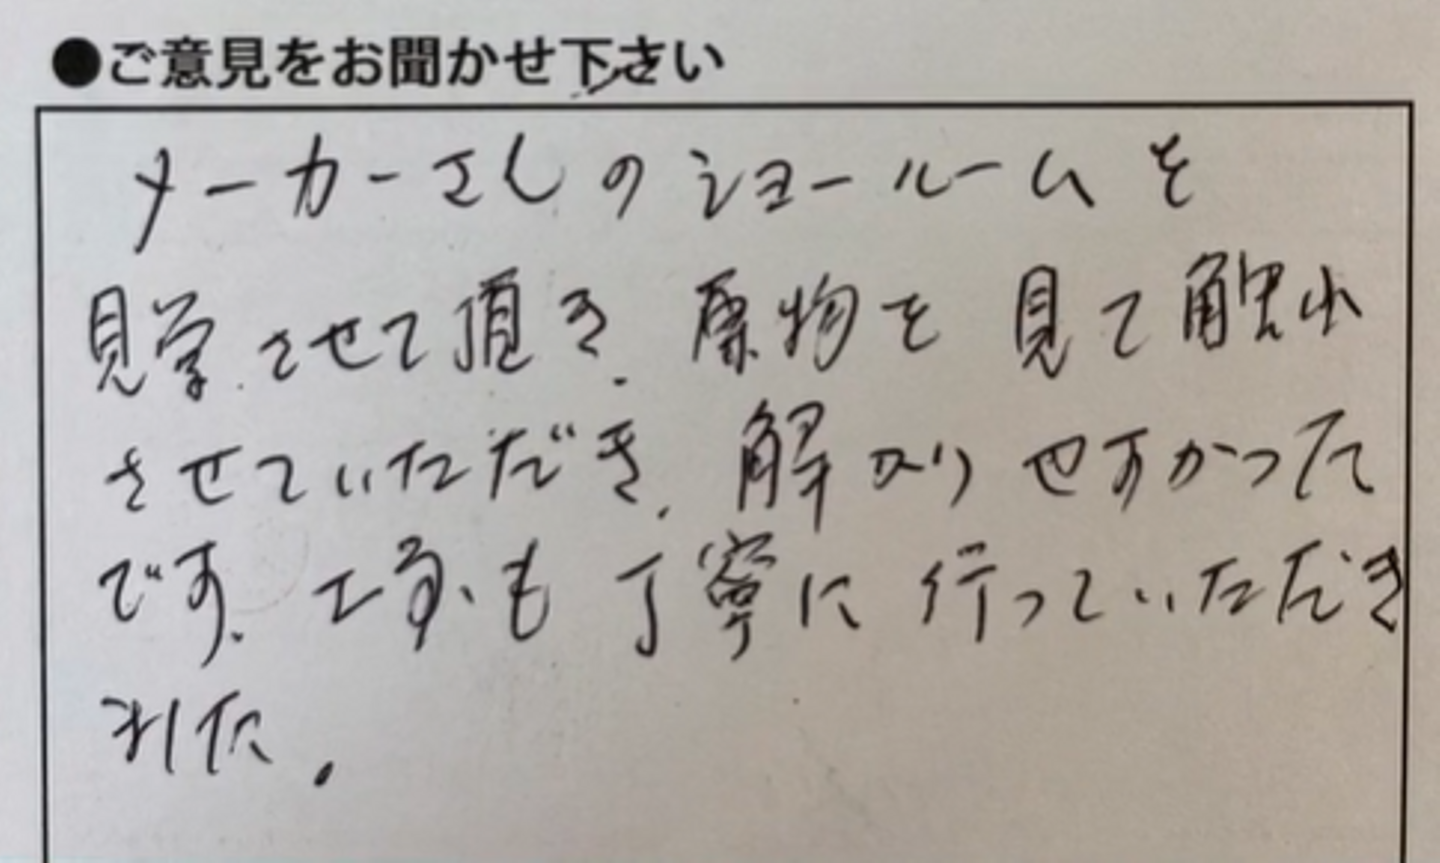 ●ご意見をお聞かせ下さい
メーカーさんのショールームを
見学させて頂き、原物を見て触れ
させていただき、解かりやすかった
です。工事も丁寧に行っていただき
ました。